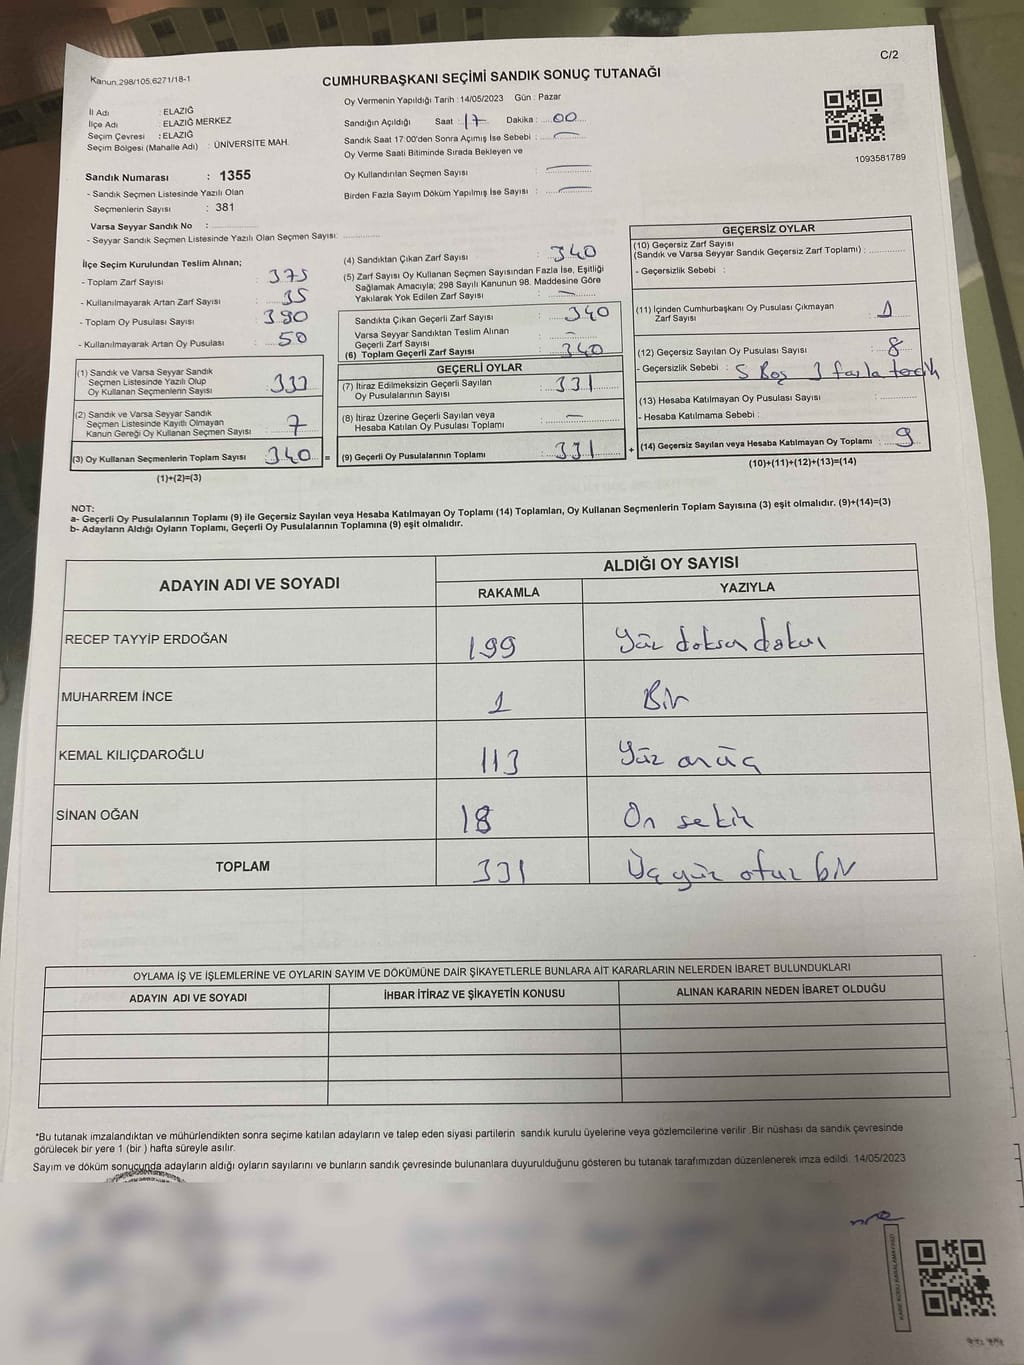 C/2
Kanun.298/105.6271/18-1
CUMHURBAŞKANI SEÇİMİ SANDIK SONUÇ TUTANAĞI
İl Adı : ELAZIĞ
İlçe Adı : ELAZIĞ MERKEZ
Seçim Çevresi : ELAZIĞ
Seçim Bölgesi (Mahalle Adı) : ÜNİVERSİTE MAH.
Sandık Numarası : 1355
- Sandık Seçmen Listesinde Yazılı Olan
Seçmenlerin Sayısı : 381
Varsa Seyyar Sandık No :
- Seyyar Sandık Seçmen Listesinde Yazılı Olan Seçmen Sayısı:
Oy Vermenin Yapıldığı Tarih :14/05/2023 Gün : Pazar
Sandığın Açıldığı Saat : 17 Dakika : 00
Sandık Saat 17:00'den Sonra Açımış İse Sebebi : —
Oy Verme Saati Bitiminde Sırada Bekleyen ve
Oy Kullandırılan Seçmen Sayısı : —
Birden Fazla Sayım Döküm Yapılmış İse Sayısı : —
1093581789
İlçe Seçim Kurulundan Teslim Alınan;
- Toplam Zarf Sayısı : 375
- Kullanılmayarak Artan Zarf Sayısı : 35
- Toplam Oy Pusulası Sayısı : 390
- Kullanılmayarak Artan Oy Pusulası : 50
(1) Sandık ve Varsa Seyyar Sandık
Seçmen Listesinde Yazılı Olup
Oy Kullanan Seçmenlerin Sayısı : 333
(2) Sandık ve Varsa Seyyar Sandık
Seçmen Listesinde Kayıtlı Olmayan
Kanun Gereği Oy Kullanan Seçmen Sayısı : 7
(3) Oy Kullanan Seçmenlerin Toplam Sayısı : 340 =
(1)+(2)=(3)
(4) Sandıktan Çıkan Zarf Sayısı : 340
(5) Zarf Sayısı Oy Kullanan Seçmen Sayısından Fazla İse, Eşitliği
Sağlamak Amacıyla; 298 Sayılı Kanunun 98. Maddesine Göre
Yakılarak Yok Edilen Zarf Sayısı : —
Sandıkta Çıkan Geçerli Zarf Sayısı : 340
Varsa Seyyar Sandıktan Teslim Alınan
Geçerli Zarf Sayısı : —
(6) Toplam Geçerli Zarf Sayısı : 340
GEÇERLİ OYLAR
(7) İtiraz Edilmeksizin Geçerli Sayılan
Oy Pusulalarının Sayısı : 331
(8) İtiraz Üzerine Geçerli Sayılan veya
Hesaba Katılan Oy Pusulası Toplamı : —
(9) Geçerli Oy Pusulalarının Toplamı : 331 +
GEÇERSİZ OYLAR
(10) Geçersiz Zarf Sayısı
(Sandık ve Varsa Seyyar Sandık Geçersiz Zarf Toplamı) :
- Geçersizlik Sebebi :
(11) İçinden Cumhurbaşkanı Oy Pusulası Çıkmayan
Zarf Sayısı : 1
(12) Geçersiz Sayılan Oy Pusulası Sayısı : 8
- Geçersizlik Sebebi : 5 Boş 3 fazla tercih
(13) Hesaba Katılmayan Oy Pusulası Sayısı :
- Hesaba Katılmama Sebebi :
(14) Geçersiz Sayılan veya Hesaba Katılmayan Oy Toplamı : 9
(10)+(11)+(12)+(13)=(14)
NOT:
a- Geçerli Oy Pusulalarının Toplamı (9) ile Geçersiz Sayılan veya Hesaba Katılmayan Oy Toplamı (14) Toplamları, Oy Kullanan Seçmenlerin Toplam Sayısına (3) eşit olmalıdır. (9)+(14)=(3)
b- Adayların Aldığı Oyların Toplamı, Geçerli Oy Pusulalarının Toplamına (9) eşit olmalıdır.
ADAYIN ADI VE SOYADI ALDIĞI OY SAYISI
RAKAMLA YAZIYLA
RECEP TAYYİP ERDOĞAN 199 Yüz doksan dokuz
MUHARREM İNCE 1 Bir
KEMAL KILIÇDAROĞLU 113 Yüz onüç
SİNAN OĞAN 18 On sekiz
TOPLAM 331 Üç yüz otuz bir
OYLAMA İŞ VE İŞLEMLERİNE VE OYLARIN SAYIM VE DÖKÜMÜNE DAİR ŞİKAYETLERLE BUNLARA AİT KARARLARIN NELERDEN İBARET BULUNDUKLARI
ADAYIN ADI VE SOYADI İHBAR İTİRAZ VE ŞİKAYETİN KONUSU ALINAN KARARIN NEDEN İBARET OLDUĞU
*Bu tutanak imzalandıktan ve mühürlendikten sonra seçime katılan adayların ve talep eden siyasi partilerin sandık kurulu üyelerine veya gözlemcilerine verilir .Bir nüshası da sandık çevresinde
görülecek bir yere 1 (bir ) hafta süreyle asılır.
Sayım ve döküm sonucunda adayların aldığı oyların sayılarını ve bunların sandık çevresinde bulunanlara duyurulduğunu gösteren bu tutanak tarafımızdan düzenlenerek imza edildi. 14/05/2023
KARE KODU KARALAMAYINIZ!